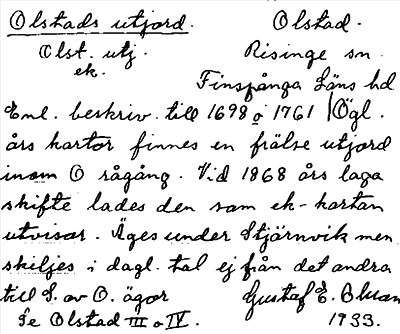 Olstads utjord. Olstad.
Olst. utj. Risinge sn.
ek. Finspånga Läns hd
Enl. beskriv. till 1698 o 1761 Ögl.
års kartor finnes en frälse utjord
inom O rågång. Vid 1868 års laga
skifte lades den som ek-kartan
utvisar. Äges under Stjärnvik men
skiljes i dagl. tal ej från det andra
till S. av O. ägor Gustaf E.
Se Olstad III o IV. 1933.